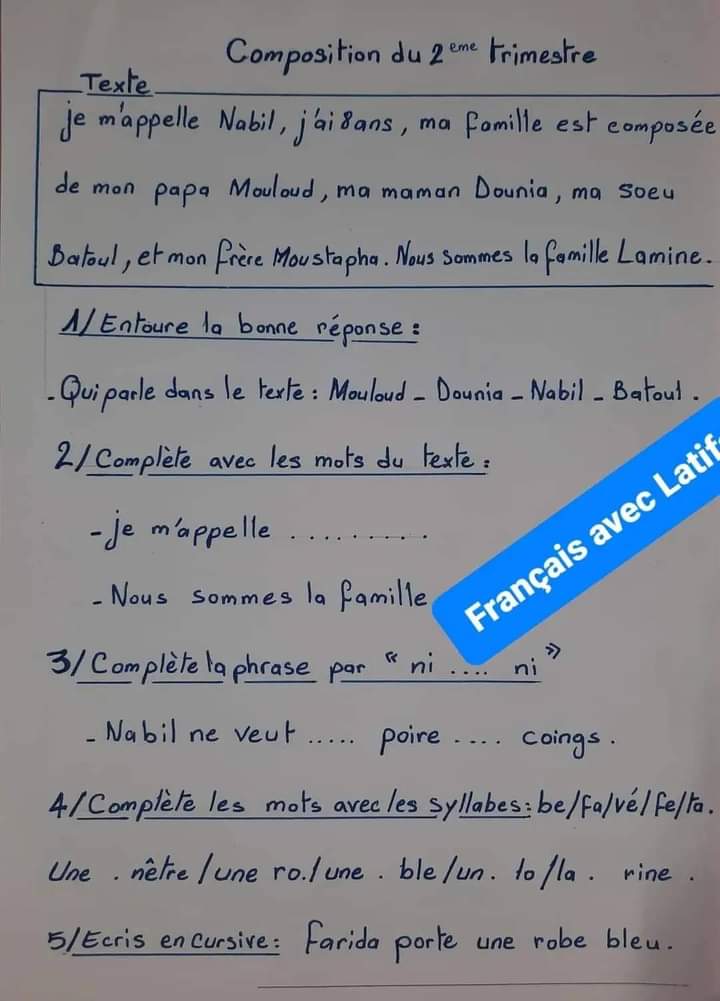 Composition du 2eme trimestre
Texte
je m'appelle Nabil, j'ai 8 ans, ma famille est composée
de mon papa Mouloud, ma maman Dounia, ma soeu
Batoul, et mon frère Moustapha. Nous sommes la famille Lamine.
1/ Entoure la bonne réponse :
- Qui parle dans le texte : Mouloud - Dounia - Nabil - Batoul .
2/ Complète avec les mots du texte :
- je m'appelle ..........
- Nous sommes la famille
Français avec Latif
3/ Complète la phrase par " ni .... ni "
- Nabil ne veut ..... poire .... coings .
4/ Complète les mots avec les syllabes : be/fa/vé/fe/ta.
Une . nêtre / une ro. / une . ble / un . lo / la . rine .
5/ Ecris en cursive : Farida porte une robe bleu.